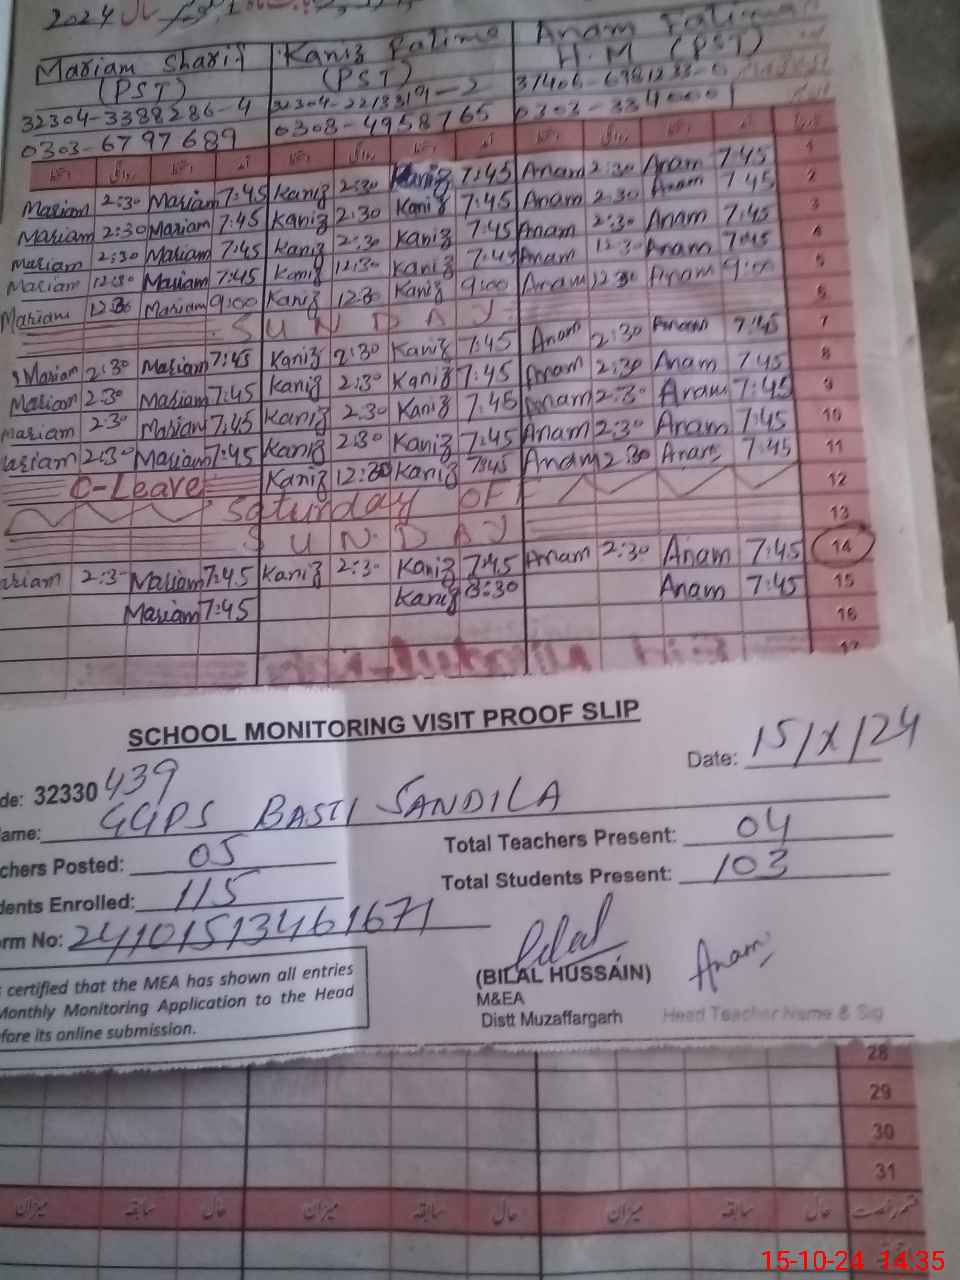 2024 سال
Mariam Sharif Kaniz Fatima Anam Fatima
(PST) (PST) H.M (PST)
32304-3338286-4
0303-6797689 0308-4958765
دستخط روانگی دستخط آمد دستخط روانگی دستخط آمد دستخط روانگی دستخط آمد
Mariam 2:30 Mariam 7:45 Kaniz 2:30 Kaniz 7:45 Anam 2:30 Anam 7:45 1
Mariam 2:30 Mariam 7:45 Kaniz 2:30 Kaniz 7:45 Anam 2:30 Anam 7:45 2
Mariam 2:30 Mariam 7:45 Kaniz 2:30 Kaniz 7:45 Anam 2:30 Anam 7:45 3
Mariam 12:30 Mariam 7:45 Kaniz 12:30 Kaniz 7:45 Anam 12:30 Anam 7:45 4
Mariam 12:30 Mariam 9:00 Kaniz 12:30 Kaniz 9:00 Anam 12:30 Anam 9:00 5
SUNDAY 6
Mariam 2:30 Mariam 7:45 Kaniz 2:30 Kaniz 7:45 Anam 2:30 Anam 7:45 7
Mariam 2:30 Mariam 7:45 Kaniz 2:30 Kaniz 7:45 Anam 2:30 Anam 7:45 8
Mariam 2:30 Mariam 7:45 Kaniz 2:30 Kaniz 7:45 Anam 2:30 Anam 7:45 9
Mariam 2:30 Mariam 7:45 Kaniz 2:30 Kaniz 7:45 Anam 2:30 Anam 7:45 10
C-Leave Kaniz 12:30 Kaniz 7:45 Anam 2:30 Anam 7:45 11
Saturday OFF 12
SUNDAY 13
ariam 2:30 Mariam 7:45 Kaniz 2:30 Kaniz 7:45 Anam 2:30 Anam 7:45 14
Mariam 7:45 Kaniz 8:30 Anam 7:45 15
16
17
SCHOOL MONITORING VISIT PROOF SLIP
Date: 15/X/24
de: 32330439
ame: GGPS BASTI SANDILA
chers Posted: 05 Total Teachers Present: 04
dents Enrolled: 115 Total Students Present: 103
orm No: 24101513461671
certified that the MEA has shown all entries
Monthly Monitoring Application to the Head
fore its online submission.
Bilal
(BILAL HUSSAIN) Anam
M&EA
Distt Muzaffargarh Head Teacher Name & Sig
28
29
30
31
میزان سابقہ حال میزان سابقہ حال میزان سابقہ حال قسم رخصت
15-10-24 14:35